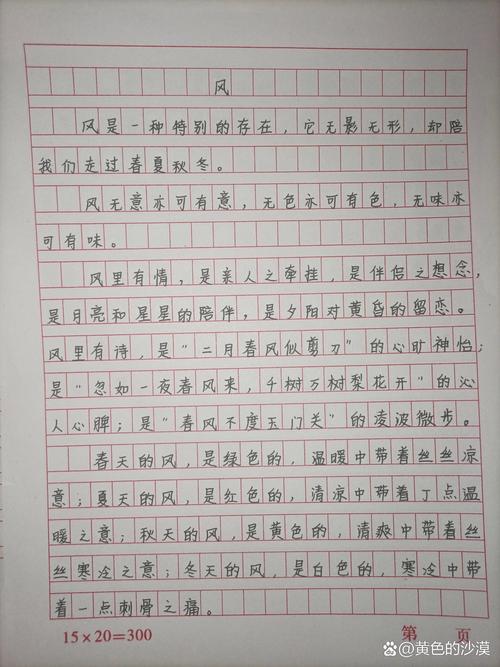 风
风是一种特别的存在，它无影无形，却陪
我们走过春夏秋冬。
风无意亦可有意，无色亦可有色，无味亦
可有味。
风里有情，是亲人之牵挂，是伴侣之想念，
是月亮和星星的陪伴，是夕阳对黄昏的留恋。
风里有诗，是“二月春风似剪刀”的心旷神怡；
是“忽如一夜春风来，千树万树梨花开”的沁
人心脾；是“春风不度玉门关”的凌波微步。
春天的风，是绿色的，温暖中带着丝丝凉
意；夏天的风，是红色的，清凉中带着丁点温
暖之意；秋天的风，是黄色的，清爽中带着丝
丝寒冷之意；冬天的风，是白色的，寒冷中带
着一点刺骨之痛。
15×20=300 第 页
@黄色的沙漠